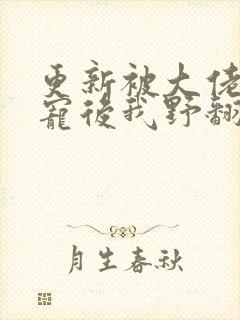 更新被大佬
寵後我野翻
月生春秋